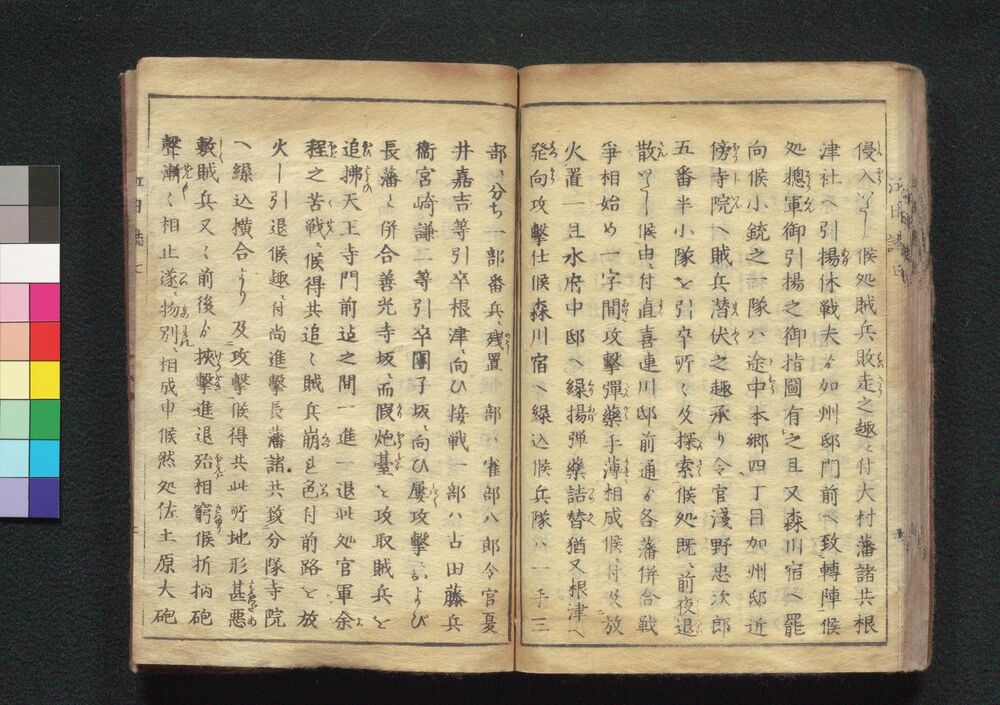 侵入いたし候処賊兵敗走之趣ニ付大村藩諸共根
津社ヘ引揚休戦夫ゟ加州邸門前ヘ致轉陣候
処摠軍御引揚之御指圖有之且又森川宿ヘ罷
向候小銃之兵隊ハ途中本郷四丁目加州邸近
傍寺院ヘ賊兵潜伏之趣承り令官淺野忠次郎
五番半小隊を引卒所々及探索候処既ニ前夜退
散いたし候由ニ付直喜連川邸前通ゟ各藩併合戦
爭相始め一字間攻撃彈藥手薄相成候ニ付及放
火置一旦水府中邸ヘ繰揚弾藥詰替猶又根津ヘ
発向攻撃仕候森川宿ヘ繰込候兵隊ハ一手三
部ニ分ち一部番兵ニ残置一部ハ雀部八郎令官夏
井嘉吉等引卒根津ニ向ひ接戦一部ハ古田藤兵
衞宮崎謙三等引卒團子坂ニ向ひ屡攻撃およひ
長藩と併合善光寺坂ニ而假炮臺を攻取賊兵を
追拂天王寺門前迠之間一進一退此処官軍余
程之苦戦ニ候得共追々賊兵崩色付前路を放
火し引退候趣ニ付尚進撃長藩諸共致分隊寺院
ヘ繰込横合より及攻撃候得共此所地形甚悪
敷賊兵又々前後ゟ挾撃進退殆相窮候折柄砲
聲漸々相止遂ニ揚別ニ相成申候然処佐土原大砲